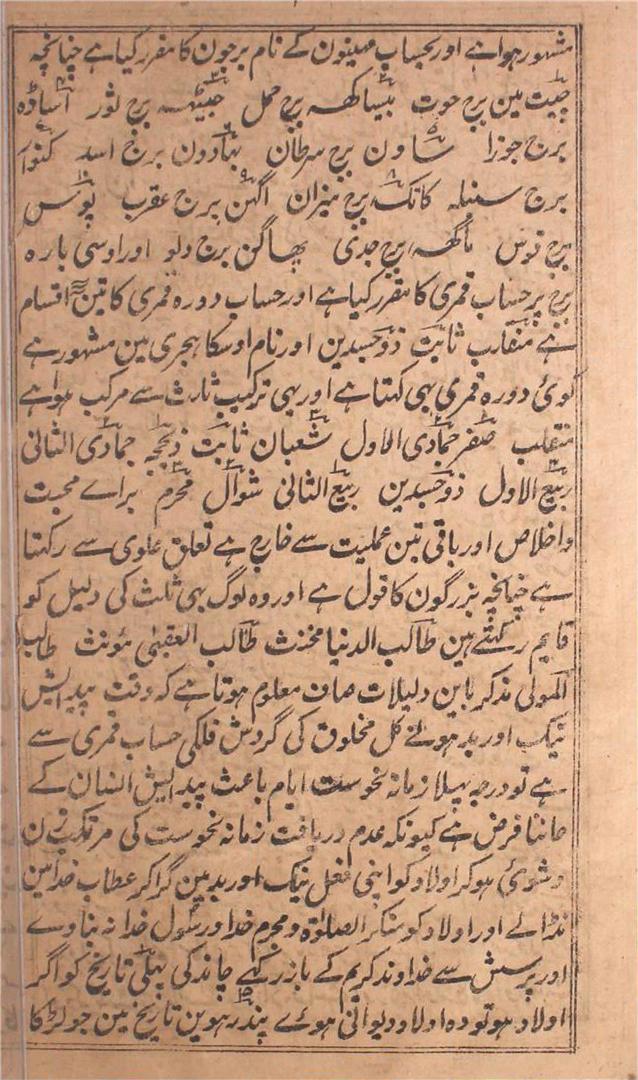 مشہور ہوا ہے اور بحساب مہینون کے نام برجون کا مقرر کیا ہے چنانچہ
چیت مین برج حوت بیساکھہ برج حمل جیٹہہ برج ثور اساڈہ
برج جوزا ساون برج سرطان بہادون برج اسد کنوار
برج سنبلہ کاتک برج میزان اگہن برج عقرب پوس
برج قوس ماگھہ برج جدی پھاگن برج دلو اور اوسی بارہ
برج پر حساب قمری کا مقرر کیا ہے اور حساب دورہ قمری کا تین اقسام
ہے منقلب ثابت ذوجسدین اور نام اوسکا ہجری مین مشہور ہے
کوئی دورہ قمری بہی کہتا ہے اور یہی ترکیب ثالث سے مرکب ہوا ہے
منقلب صفر جمادی الاول شعبان ثابت ذیحجہ جمادی الثانی
ربیع الاول ذوجسدین ربیع الثانی شوال محرم براے محبت
و اخلاص اور باقی تین عملیت سے خارج ہے تعلق علوی سے رکہتا
ہے چنانچہ بزرگون کا قول ہے اور وہ لوگ بہی ثلث کی دلیل کو
قایم رکہتے ہین طالب الدنیا مخنث طالب العقبیٰ مونث طالب
المولی مذکر باین دلیلات صاف معلوم ہوتا ہے کہ وقت پیدایش
نیک اور بد ہونے کل مخلوق کی گردش فلکی حساب قمری سے
ہے تو درجہ پہلا زمانہ نحوست ایام باعث پیدایش انسان کے
جاننا فرض ہے کیونکہ عدم دریافت زمانہ نحوست کی مرتکب زن
و شوئی ہوکر اولاد کو اپنی فعل نیک اور بد مین گرا کر عطاب خدا مین
نڈالے اور اولاد کو منکر الصلوٰۃ و مجرم خدا و رسول خدا نہ بناوے
اور پرسش سے خداوند کریم کے باز رکہے چاند کی پہلی تاریخ کو اگر
اولاد ہو تو وہ اولاد دیوانی ہوے پندرہوین تاریخ مین جو لڑکا